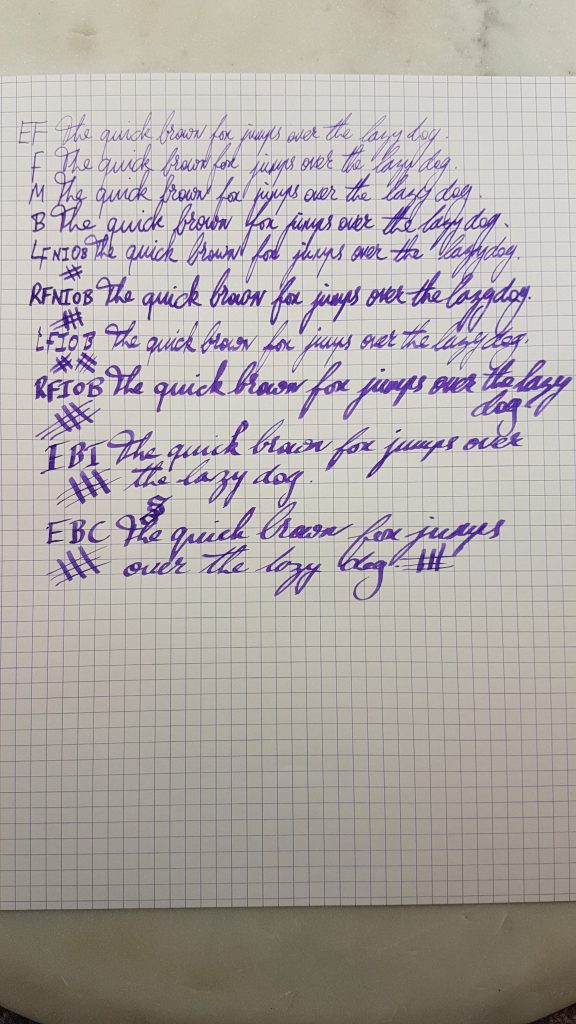 EF The quick brown fox jumps over the lazy dog.
F The quick brown fox jumps over the lazy dog.
M The quick brown fox jumps over the lazy dog.
B The quick brown fox jumps over the lazy dog.
LFNIOB The quick brown fox jumps over the lazy dog.
RFNIOB The quick brown fox jumps over the lazy dog.
LFIOB The quick brown fox jumps over the lazy dog.
RFIOB The quick brown fox jumps over the lazy
dog.
EBI The quick brown fox jumps over
the lazy dog.
EBC The quick brown fox jumps
over the lazy dog.